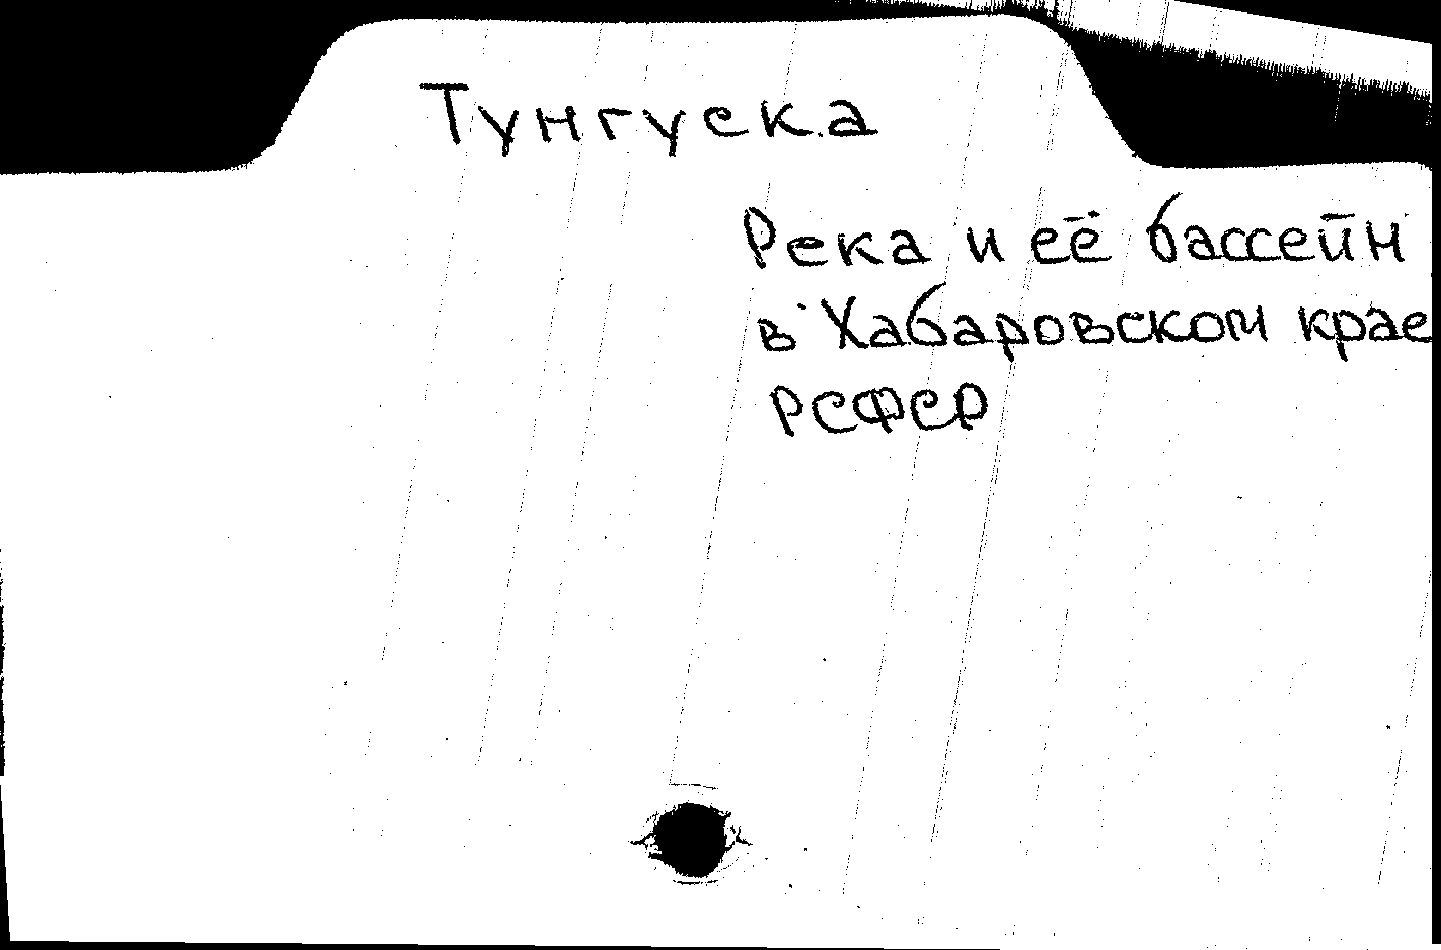 Тунгуска
Река и её бассейн
в Хабаровском крае
РСФСР